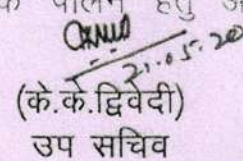 के पालन हेतु
21.05.20
(के.के.द्विवेदी)
उप सचिव